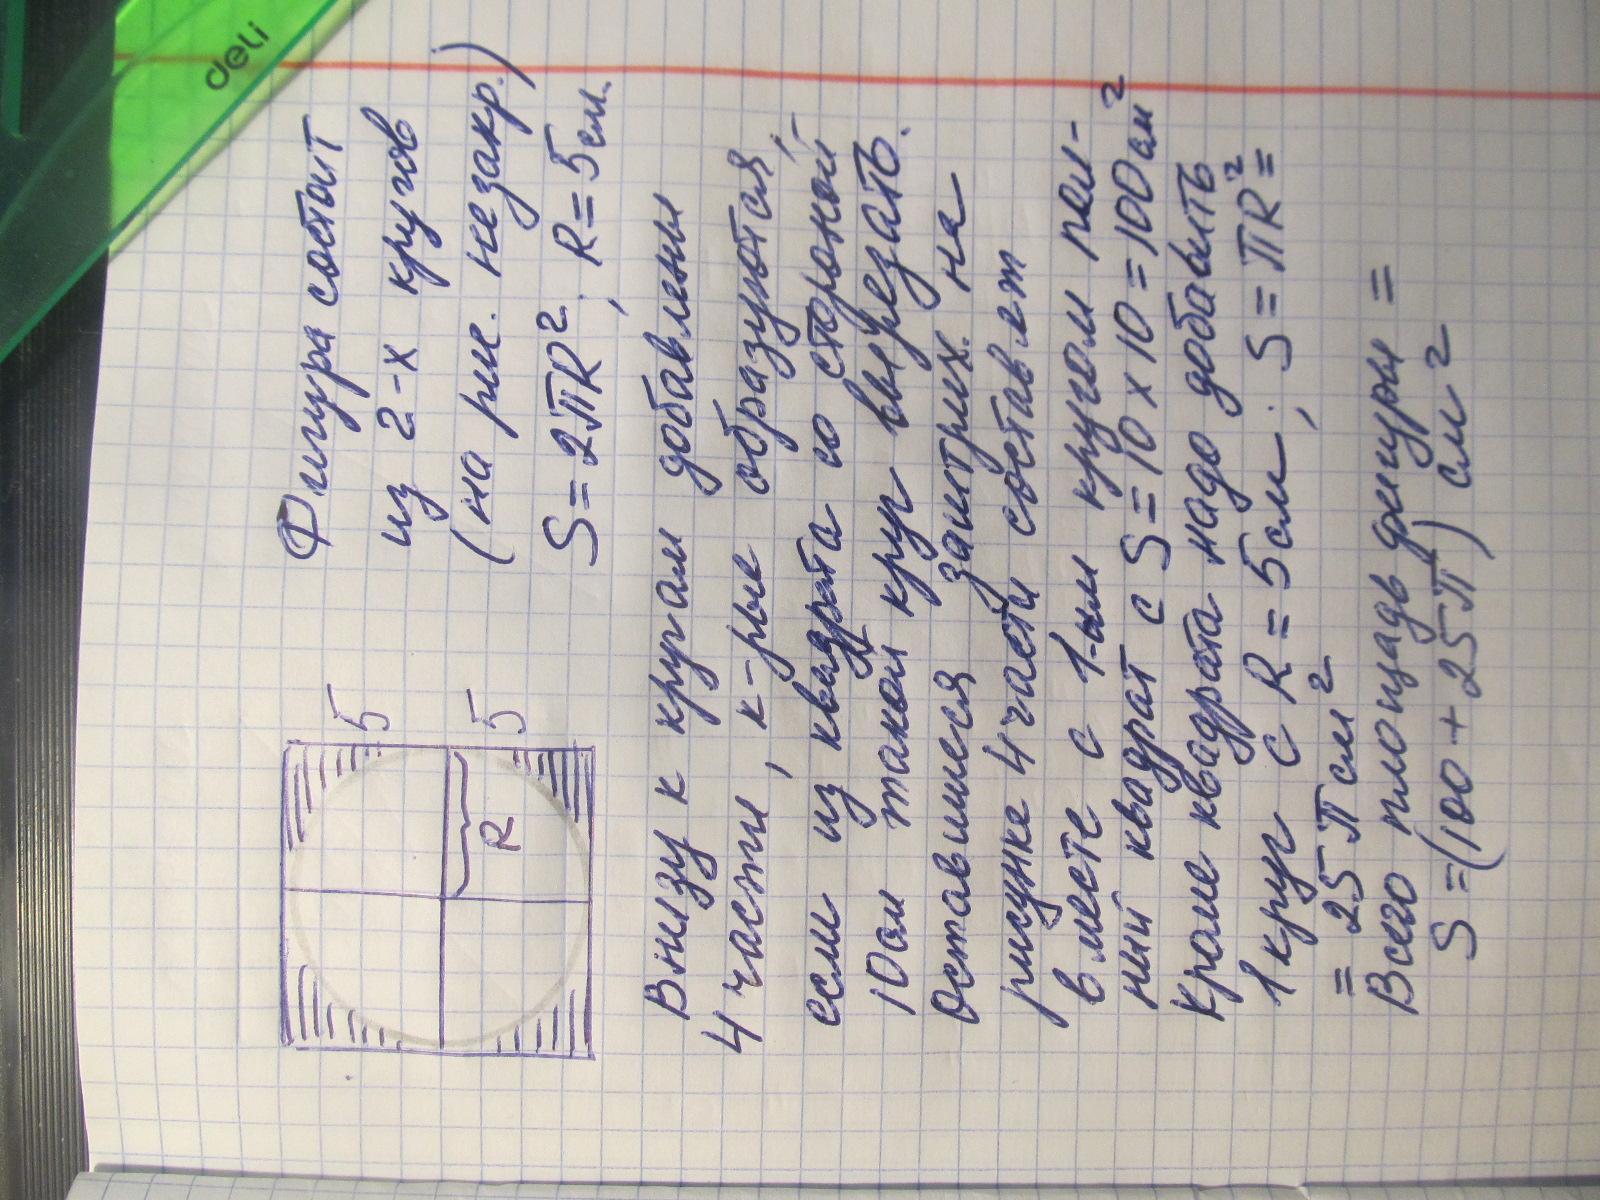 deli
Фигура состоит
из 2-х кругов
(на рис. не закр.)
S=2πR²; R=5см.
5
5
R
Внизу к кругам добавлены
4 части, к-рые образуются,
если из квадрата со стороной
10см такой круг вырезать.
Оставшиеся заштрих. на
рисунке 4 части составят
вместе с 1-ым кругом пол-
ный квадрат с S=10х10=100см²
Кроме квадрата надо добавить
1 круг с R=5см; S=πR²=
=25πсм²
Всего площадь фигуры =
S=(100+25π) см²